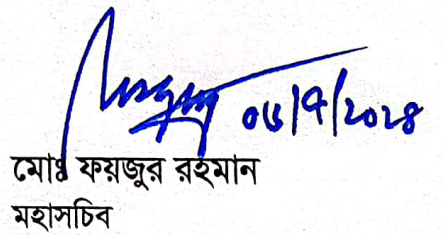 ০৬/৭/২০২৪
মোঃ ফয়জুর রহমান
মহাসচিব